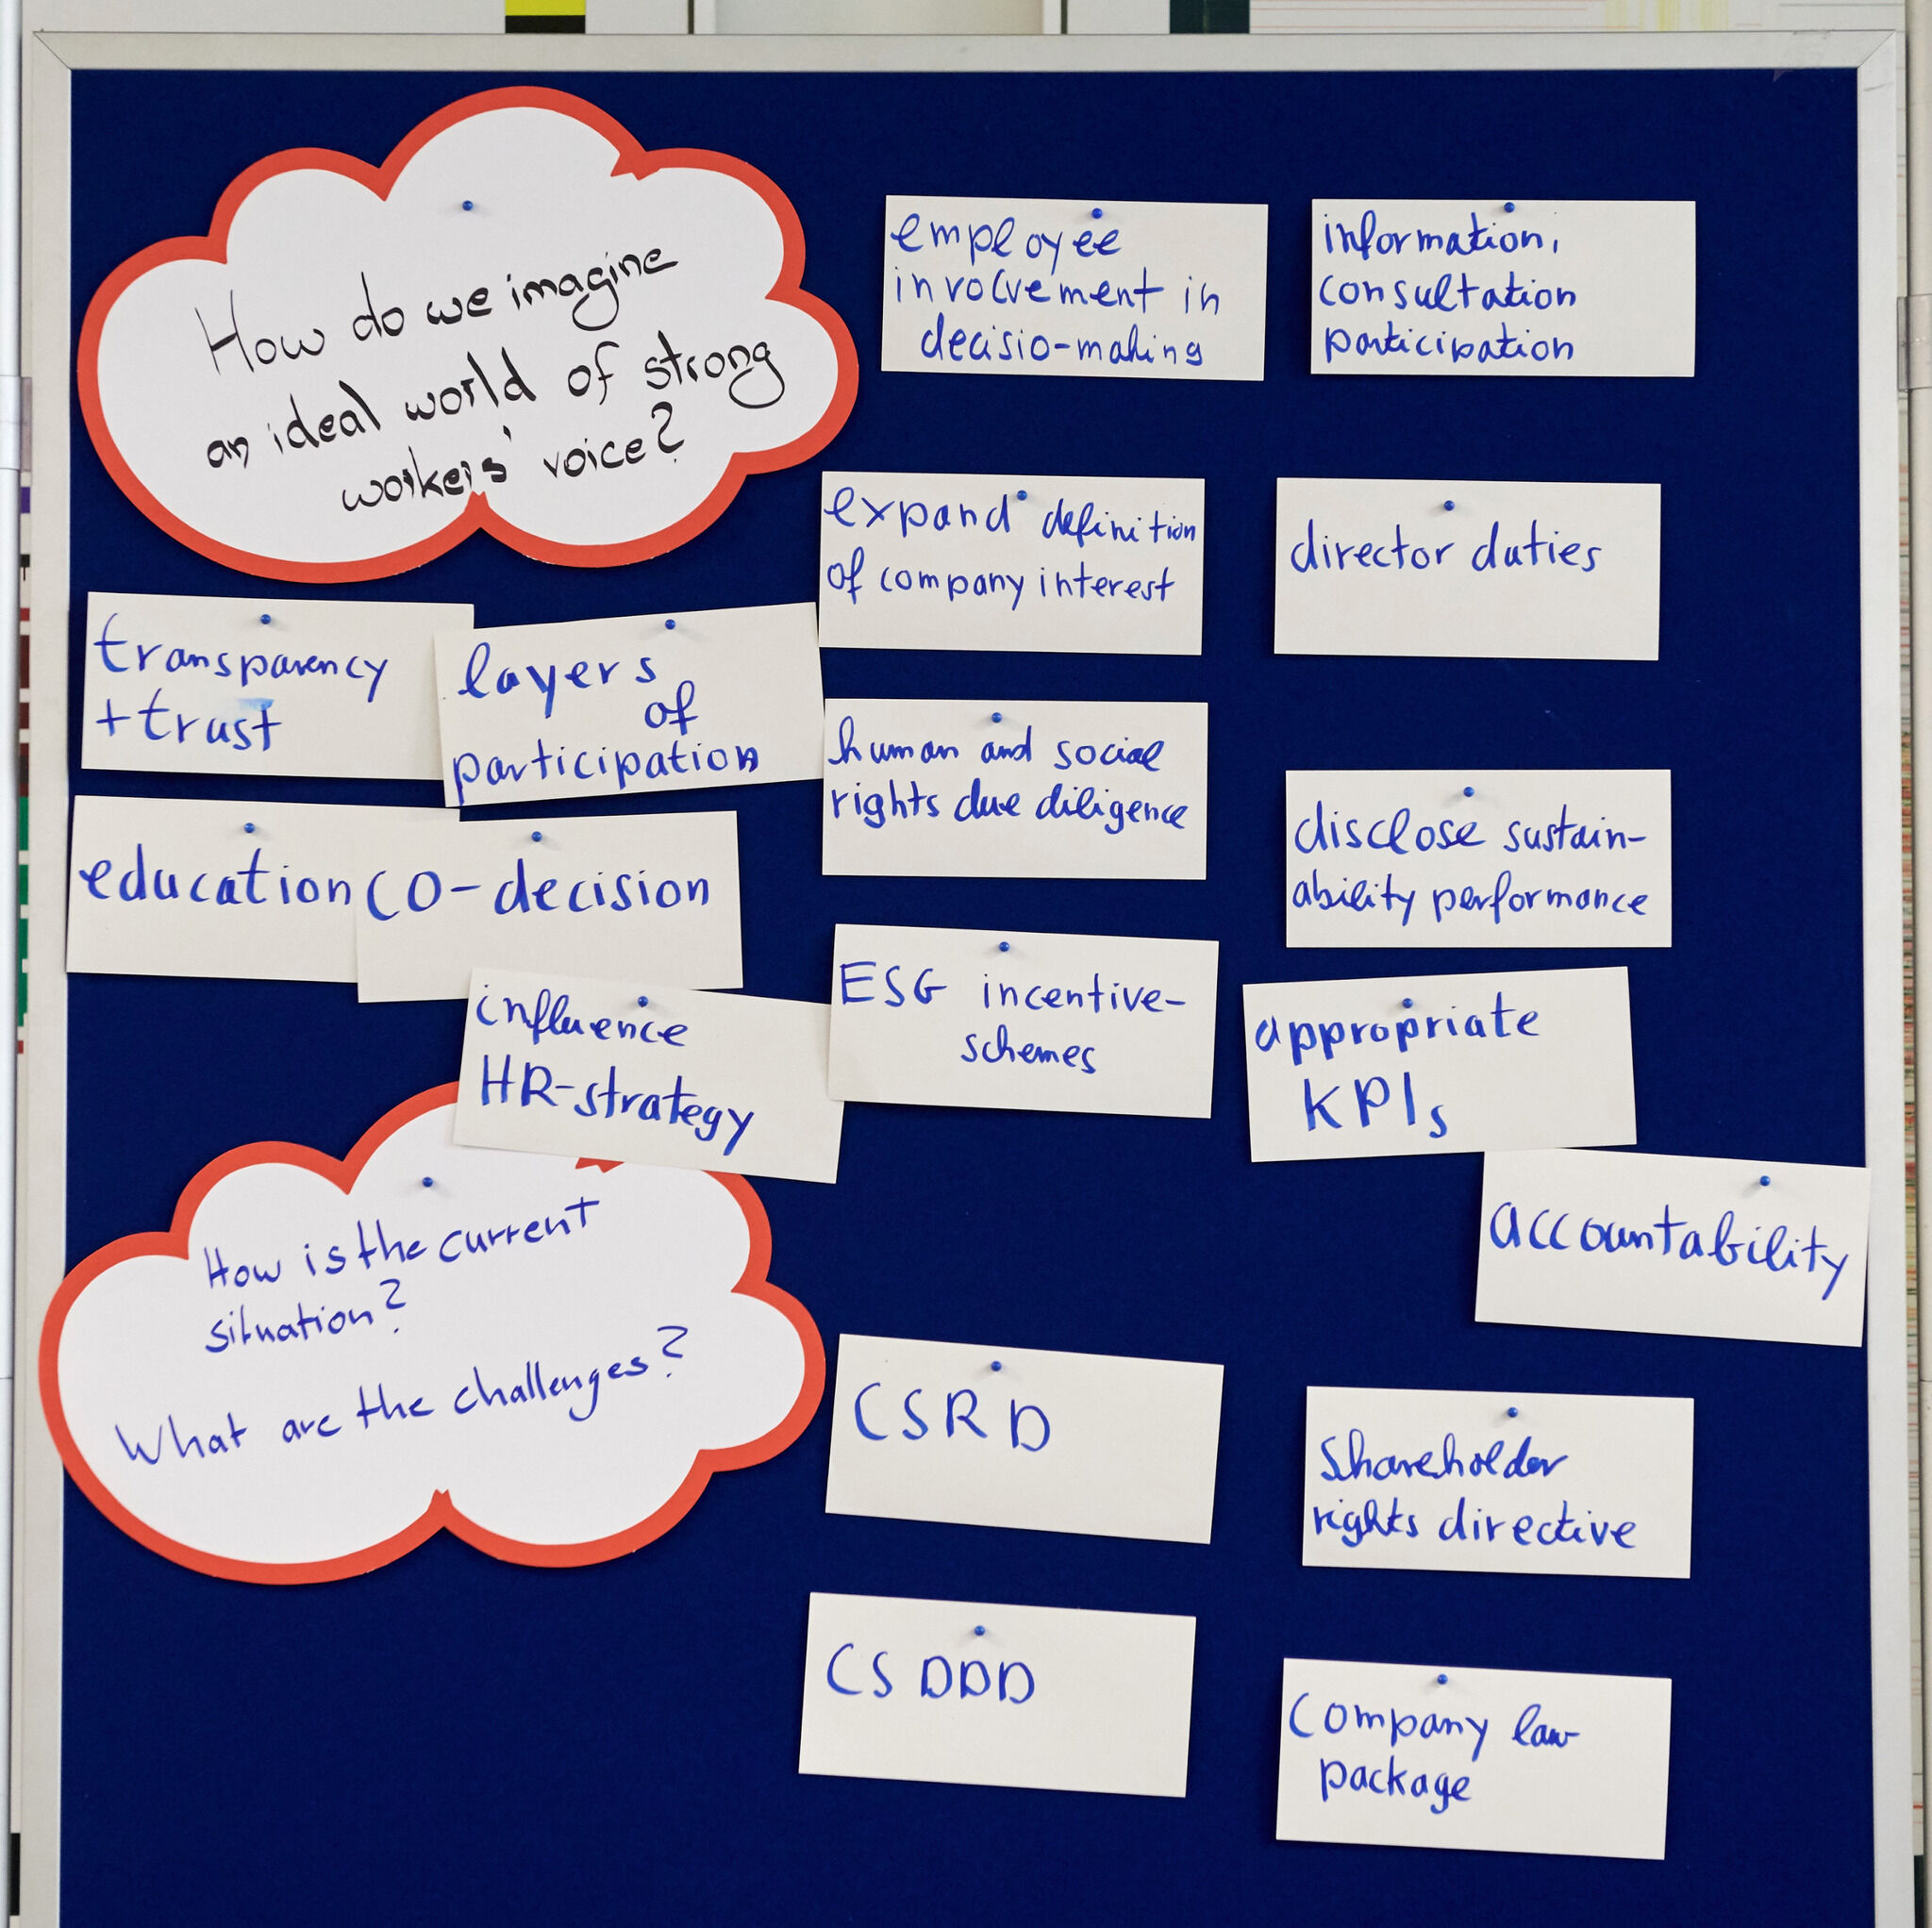 How do we imagine
an ideal world of strong
workers' voice?
employee
involvement in
decisio-making
information,
consultation
participation
expand definition
of company interest
director duties
transparency
+trust
layers
of
participation
human and social
rights due diligence
disclose sustain-
ability performance
education
CO-decision
influence
HR-strategy
ESG incentive-
schemes
appropriate
KPIs
accountability
How is the current
situation?
What are the challenges?
CSRD
Shareholder
rights directive
CSDDD
Company law
package